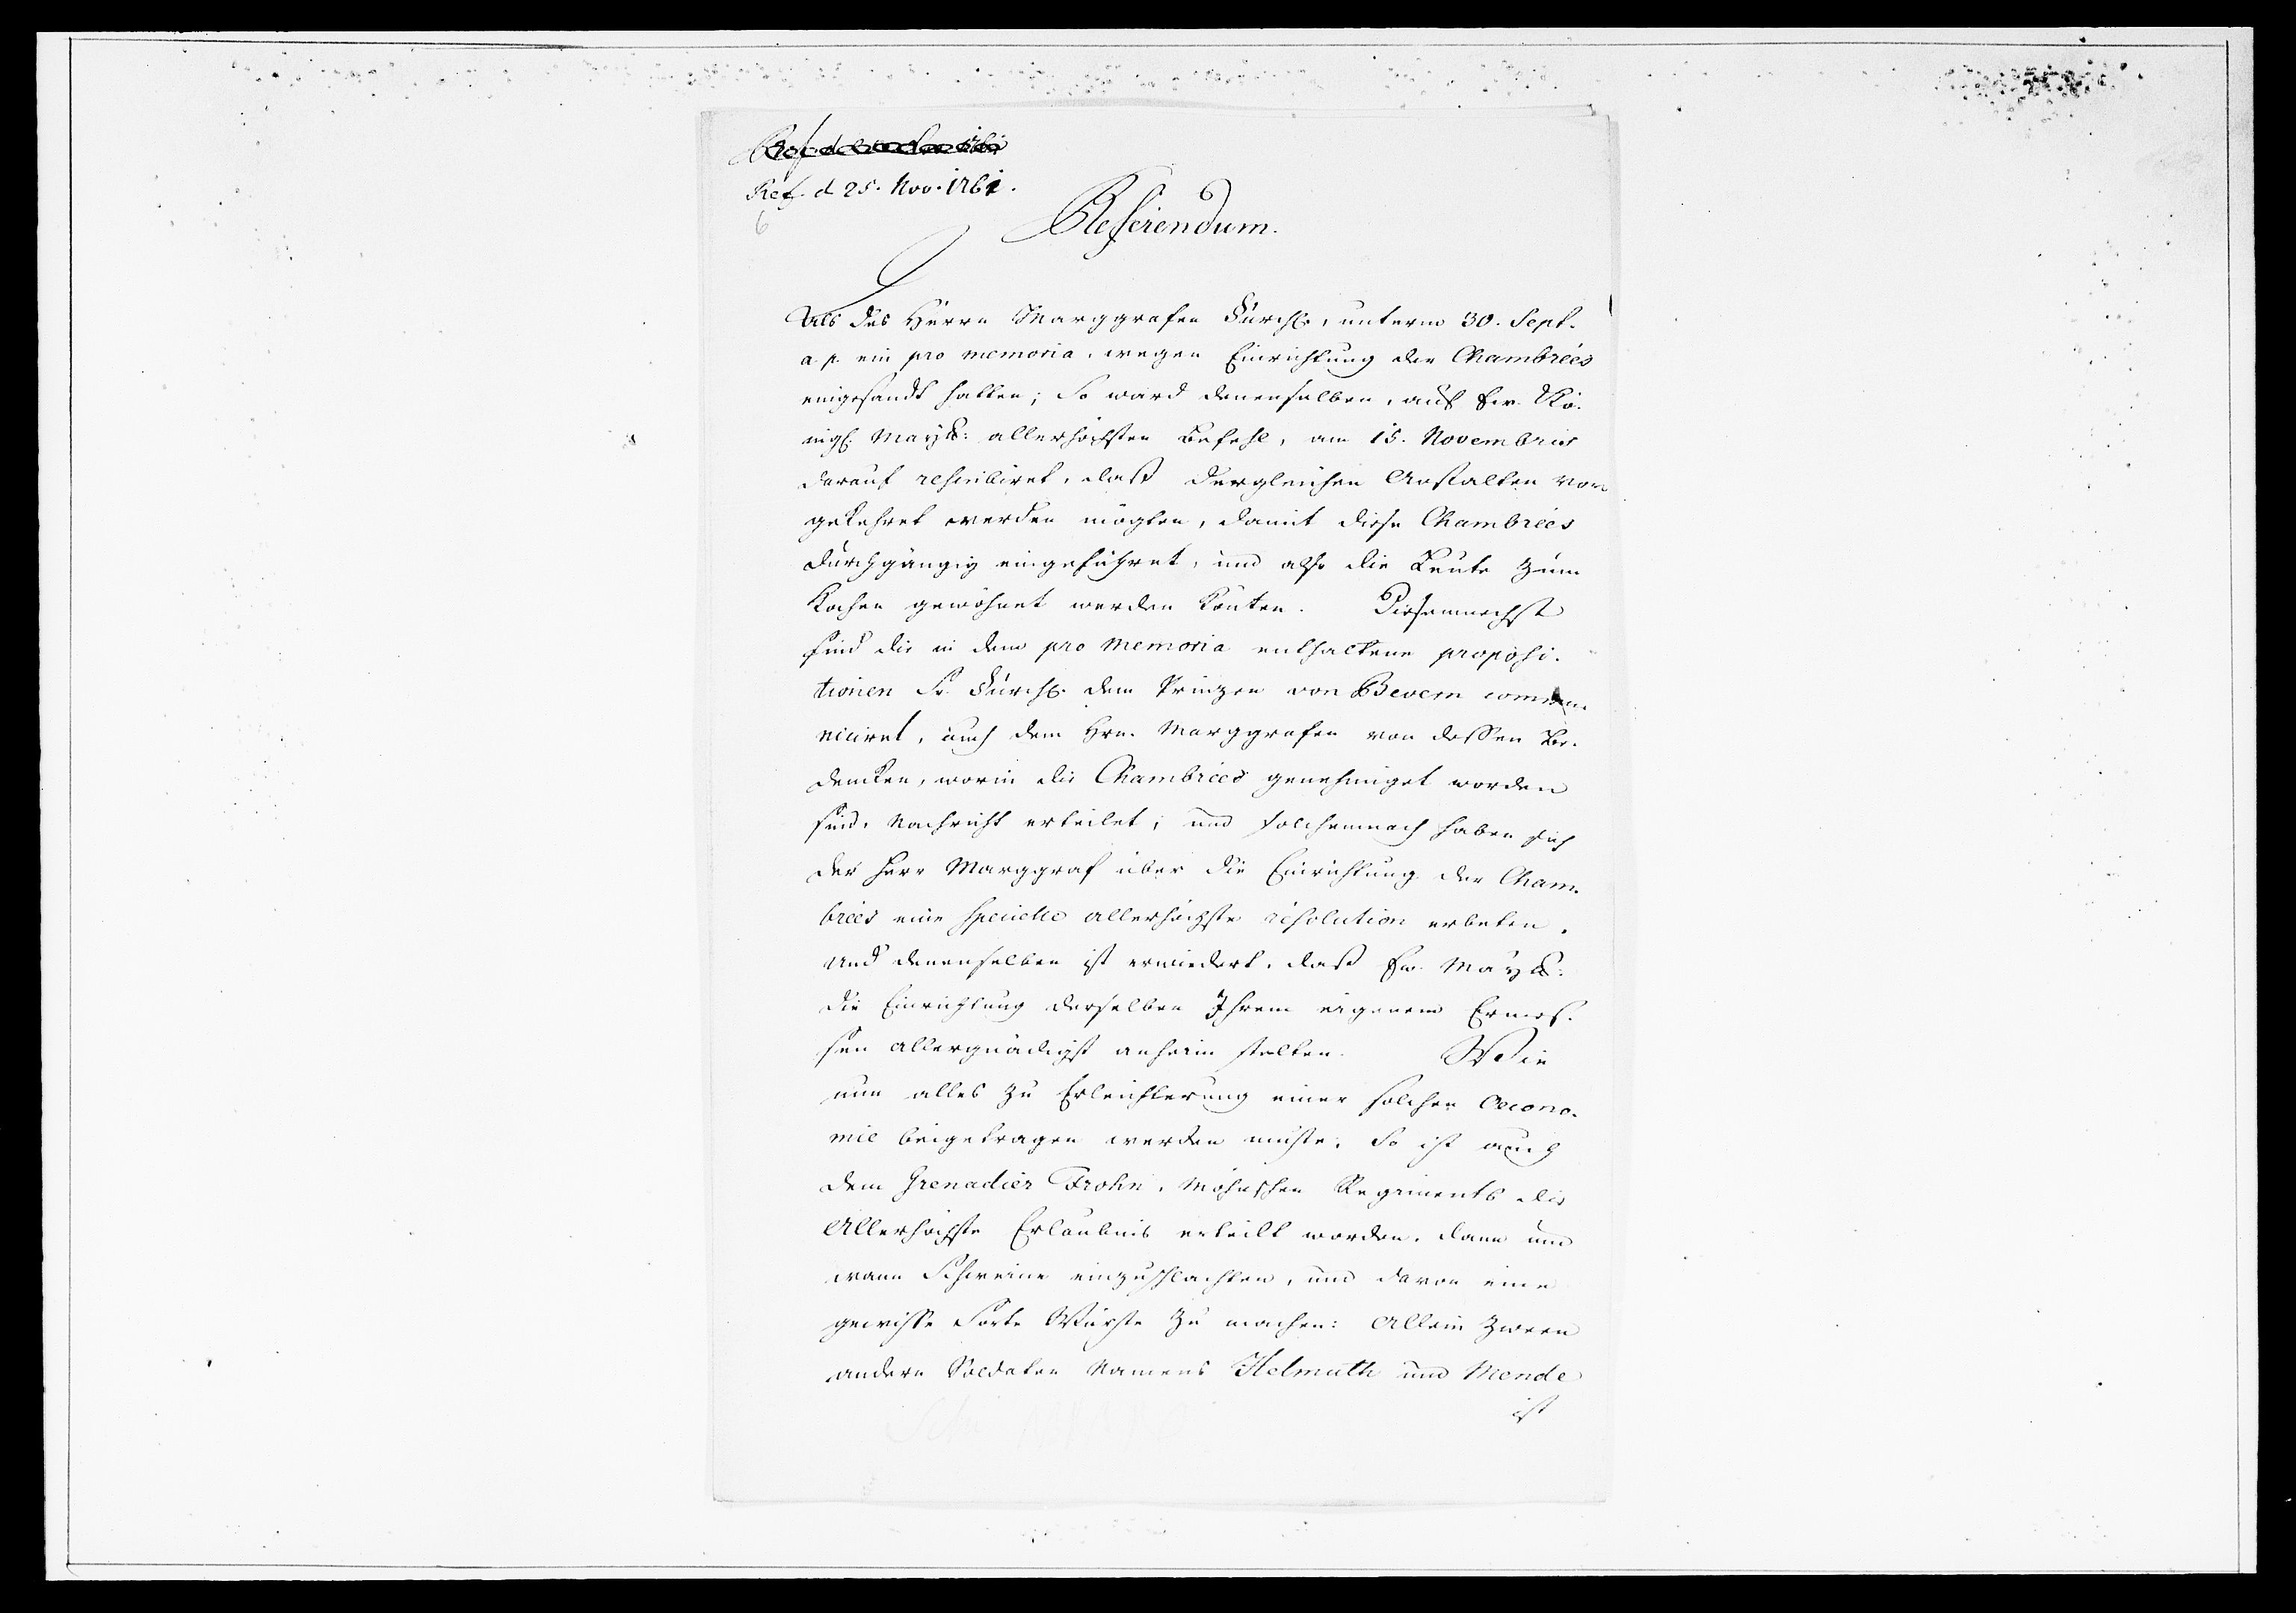 Ref. d 25. Nov. 1761.
6
Referendum.
Als des Herrn Marggrafen Durchl. unterm 30. Sept.
a. p. ein pro memoria, wegen Einrichtung der Chambrées
eingesandt hatten; So ward denenselben, auf Ew. Kö-
nigl. Mayst: allerhöchsten Befehl, am 15. Novembris
darauf rescribiret, daß dergleichen Anstalten vor
gekehret werden mögten, damit diese Chambrées
durchgängig eingeführet, und also die Leute zum
Kochen gewöhnet werden könten. Diesemnechst
sind die in dem pro Memoria enthaltene proposi-
tionen Sr. Durchl. dem Prinzen von Bevern commu-
niciret, auch dem Hrn. Marggrafen von dessen Be-
dencken, worin die Chambrées genehmiget worden
sind, Nachricht erteilet; und solchemnach haben sich
der Herr Marggraf über die Einrichtung der Cham-
brées eine specielle allerhöchste resolution erbeten.
Und denenselben ist erwiedert, daß Ew. Mayst:
die Einrichtung derselben Ihrem eigenem Ermes-
sen allergnädigst anheim stelten. Wie
nun alles zu Erleichterung einer solchen Oecono-
mie beigetragen werden muste, So ist auch
dem Grenadier Frohn, Möhnschen Regiments die
Allerhöchste Erlaubnis erteilt worden, dann und
wann Schweine einzuschlachten, und davon eine
gewisse Sorte Würste zu machen: Allein zween
andern Soldaten Namens Helmuth und Mende
ist